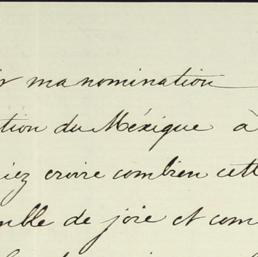 ma nomination
tion du Méxique à
iez croire combien cette
mble de joie et com